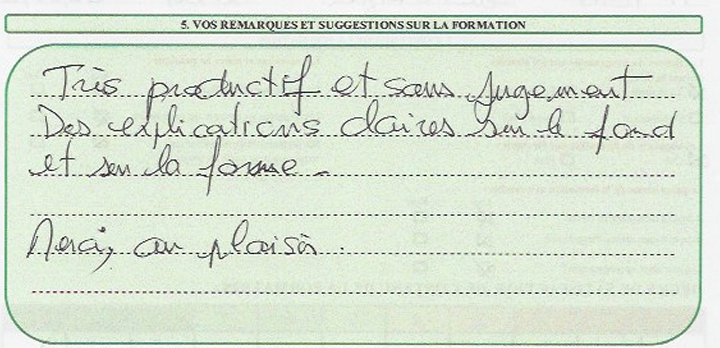 5. VOS REMARQUES ET SUGGESTIONS SUR LA FORMATION
Très productif et sans jugement
Des explications claires sur le fond
et sur la forme -
Merci, au plaisir.